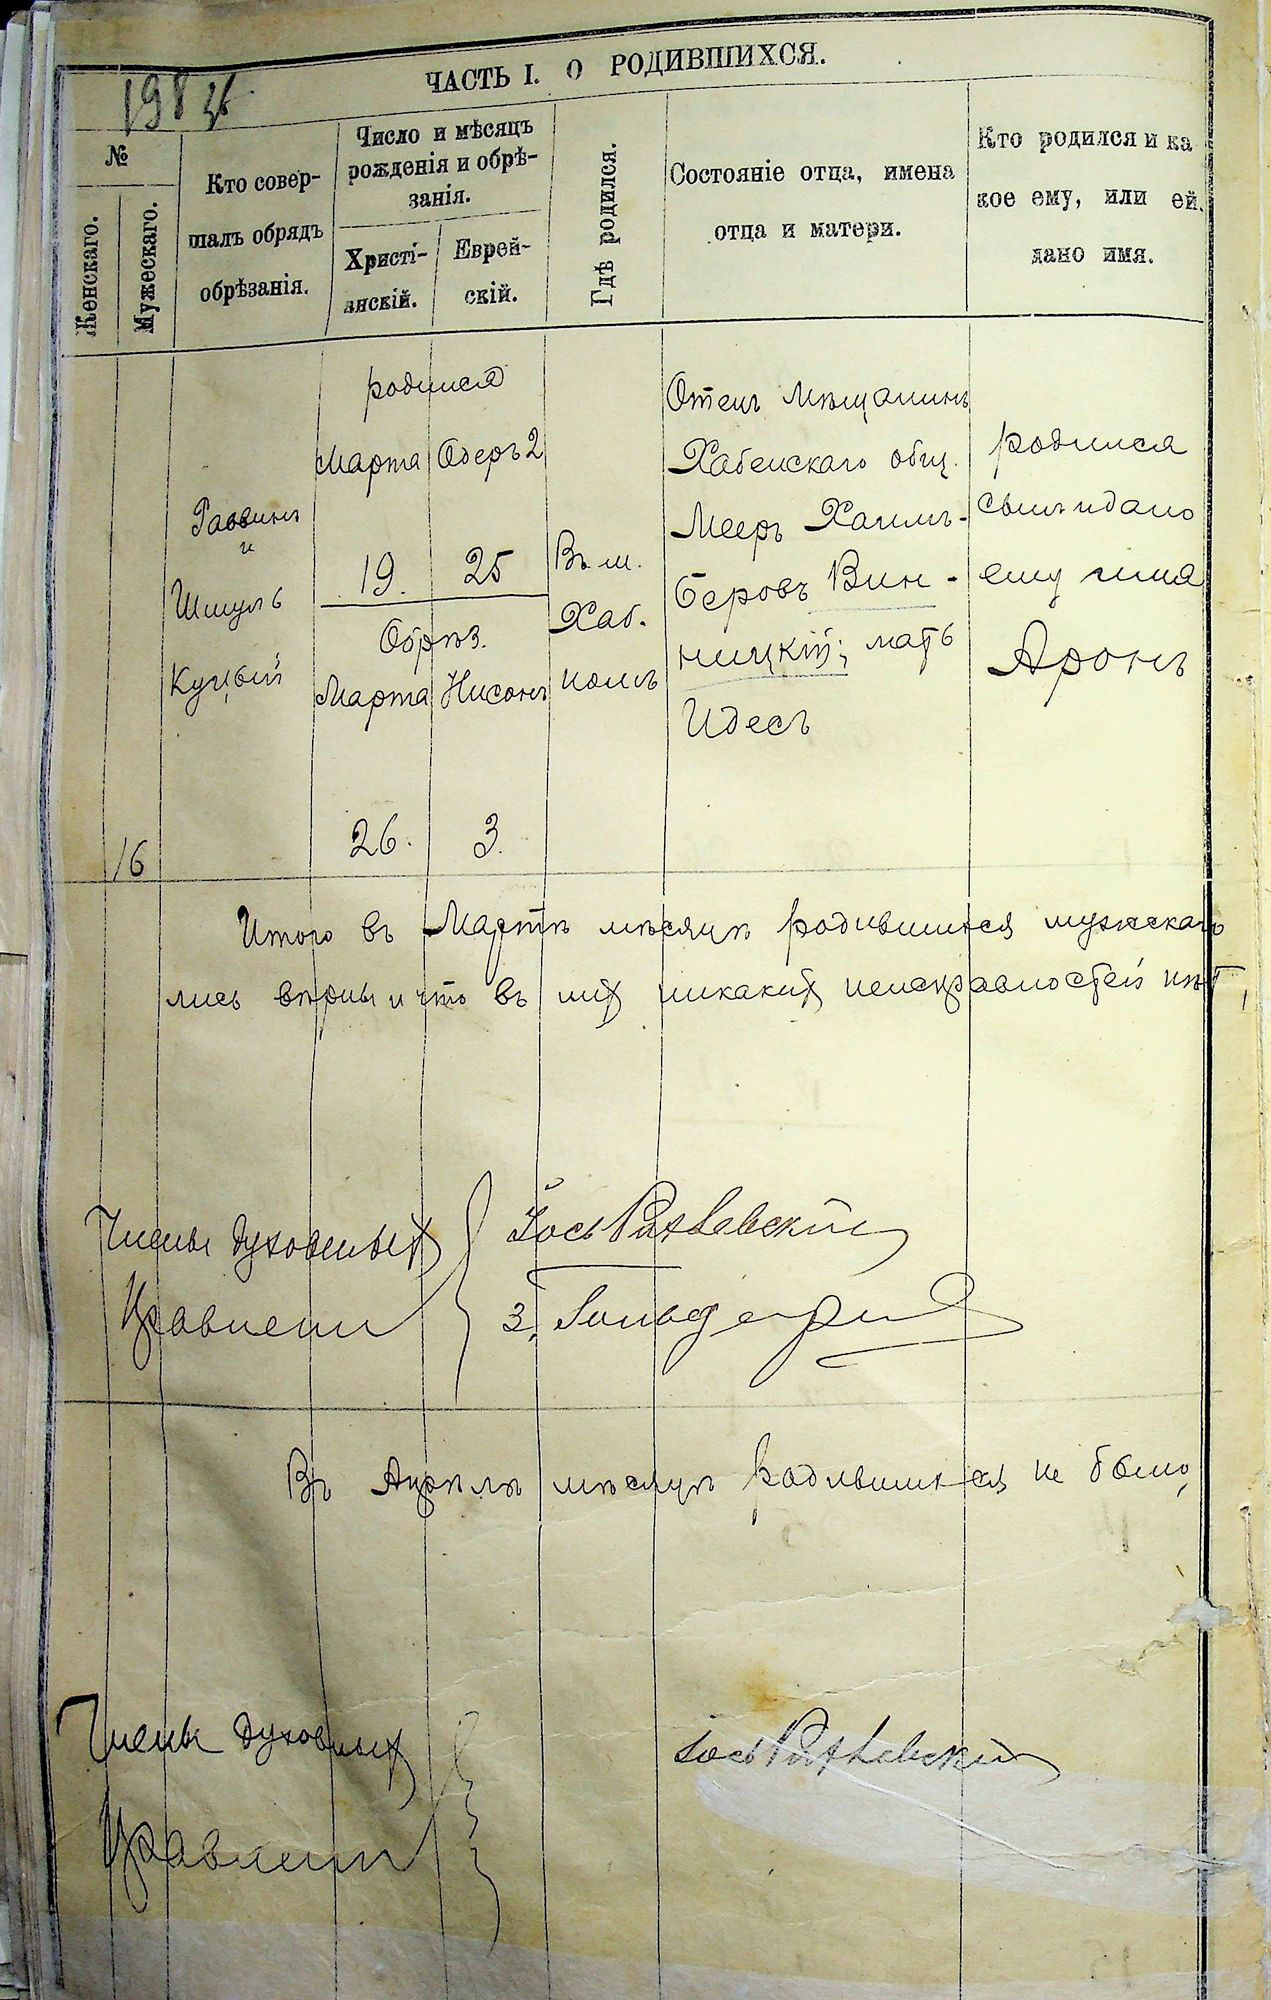 198
ЧАСТЬ I. О РОДИВШИХСЯ.
№
Женскаго.
Мужескаго.
Кто совер-
шалъ обрядъ
обрѣзанія.
Число и мѣсяцъ
рожденія и обрѣ-
занія.
Христі-
анскій.
Еврей-
скій.
Гдѣ родился.
Состояніе отца, имена
отца и матери.
Кто родился и ка
кое ему, или ей,
дано имя.
16
Раввинъ
и
Шмуль
Куцый
родился
Марта Одеръ 2
19. 25
Обрѣз.
Марта Нисонъ
26. 3.
Въ м.
Хаб.
номъ
Отецъ мѣщанинъ
Хабенскаго общ.
Мееръ Хаимъ-
Беровъ Вин-
ницкій; мать
Идесъ
родился
сынъ и дано
ему имя
Аронъ
Итого въ Мартѣ мѣсяцѣ родившихся мужскаго
лись вѣрны и что въ них никаких неисправностей нѣт,
Члены Духовных
Правлени
Іось
З. Гольд
Въ Апрѣлѣ мѣсяцѣ родившихся не было,
Члены Духовных
Правлени
Іось